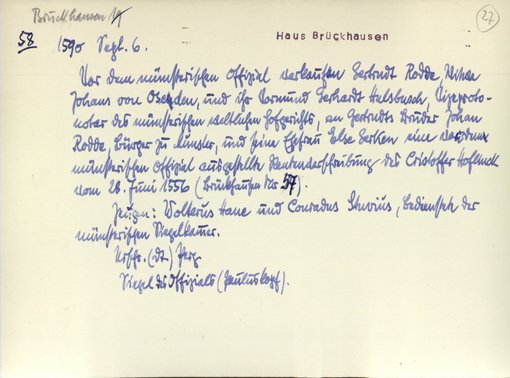 Brückhausen
27
58
Haus Brückhausen
1590 Sept. 6.
Vor dem münsterischen Offizial verkaufen Gertrudt Rodde, Witwe
Johans von Oseden, und ihr Vormund Gerhardt Hulsbusch, Vizeproto-
notar des münsterischen weltlichen Hofgerichts, an Gertrudts Bruder Johan
Rodde, Bürger zu Münster, und seine Ehefrau Else Gerken eine vor dem
münsterischen Offizial ausgestellte Rentenverschreibung des Cristoffer
vom 26. Juni 1556 (Brückhausen Nr 57).
Zeugen: Wolterus Hane und Conradus Stuvius, Bedienstete der
münsterischen Siegelkamer.
Urschr. (dt.) Perg.
Siegel des Offizials (Pauluskopf).